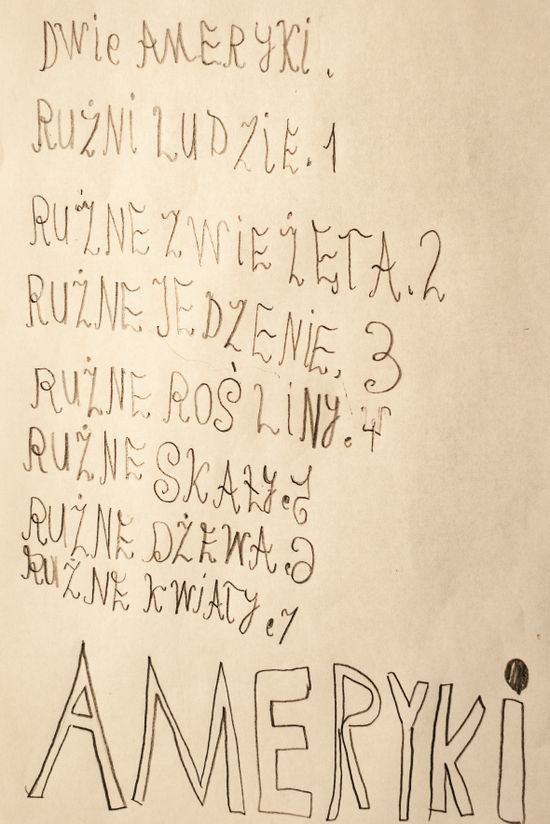 DWie AMERYKi.
RUŻNi LUDZiE. 1
RUŻNE ZWiEŻĘTA. 2
RUŻNE JEDZENiE. 3
RUŻNE ROŚLiNY. 4
RUŻNE SKAŁY. 5
RUŻNE DŻEWA. 6
RUŻNE KWiATY. 7
AMERYKi